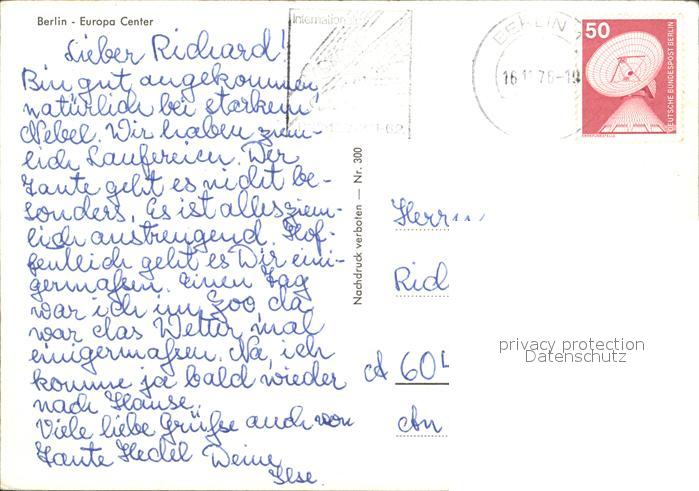 Berlin - Europa Center
Lieber Richard!
Bin gut angekommen
natürlich bei starkem
Nebel. Wir haben ziem-
lich Laufereien. Der
Tante geht es nicht be-
sonders. Es ist alles ziem-
lich anstrengend. Hof-
fentlich geht es Dir eini-
germaßen. Einen Tag
war ich im Zoo da
war das Wetter mal
einigermaßen. Na, ich
komme ja bald wieder
nach Hause.
Viele liebe Grüße auch von
Tante Hedel Deine
Ilse.
Nachdruck verboten — Nr. 300
Internation
BERLIN
16 76-19
50
DEUTSCHE BUNDESPOST BERLIN
ERDEFUNKSTELLE
Herrn
Rich
A 60
An
privacy protection
Datenschutz